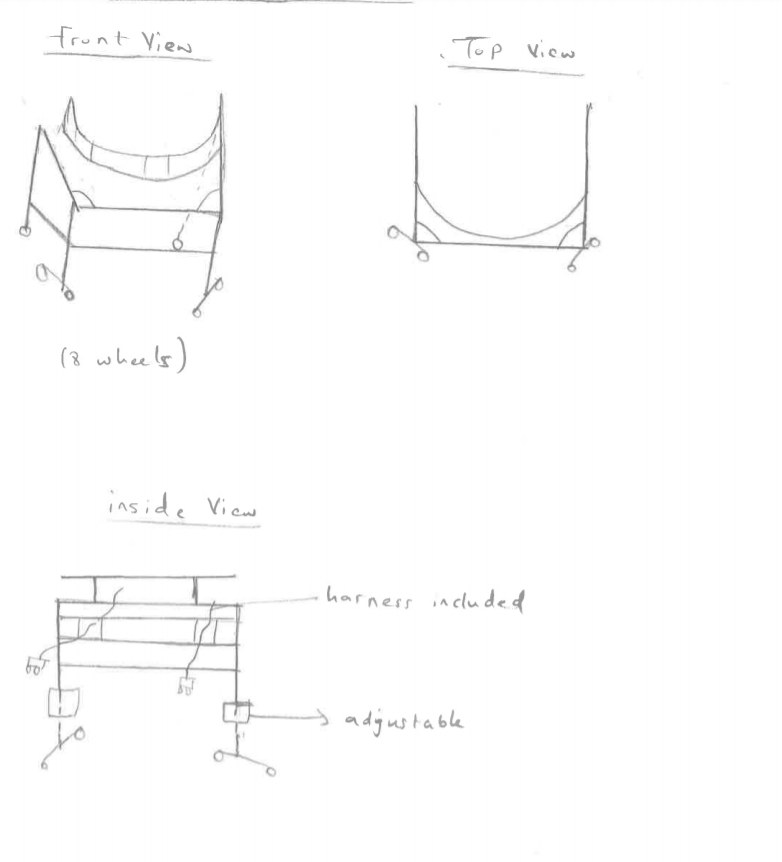 Front View
Top view
(8 wheels)
inside View
harness included
adjustable